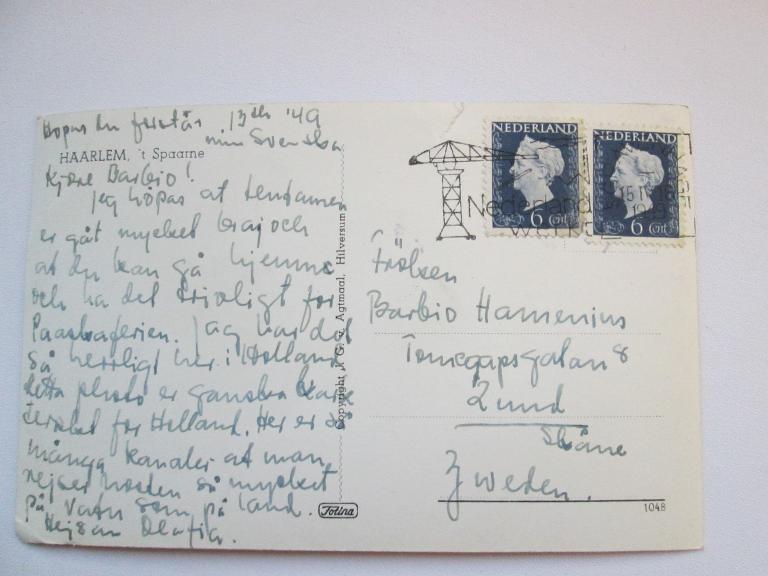 Hopas du forstår 13th '49
min Svenska
HAARLEM, 't Spaarne
Kjære Barbio!
Jeg höpas at tentamen
er gåt mycket braj och
at du kan gå hjemme
och ha det trivligt for
Paaskaferien. Jag har det
så herrligt her i Holland
detta photo er ganska
for Holland. Her er så
många kanaler at man
rejser nesten så mycket
på vatn som på land.
Hejsan Olafia.
Copyright N.G. v. Agtmaal, Hilversum
Fotina
NEDERLAND
6 Cnt
NEDERLAND
6 Cnt
Nederland
15 IV 16
Fröken
Barbio Hamenius
Tomegapsgatan 8
Lund
Skåne
Zweden.
1048